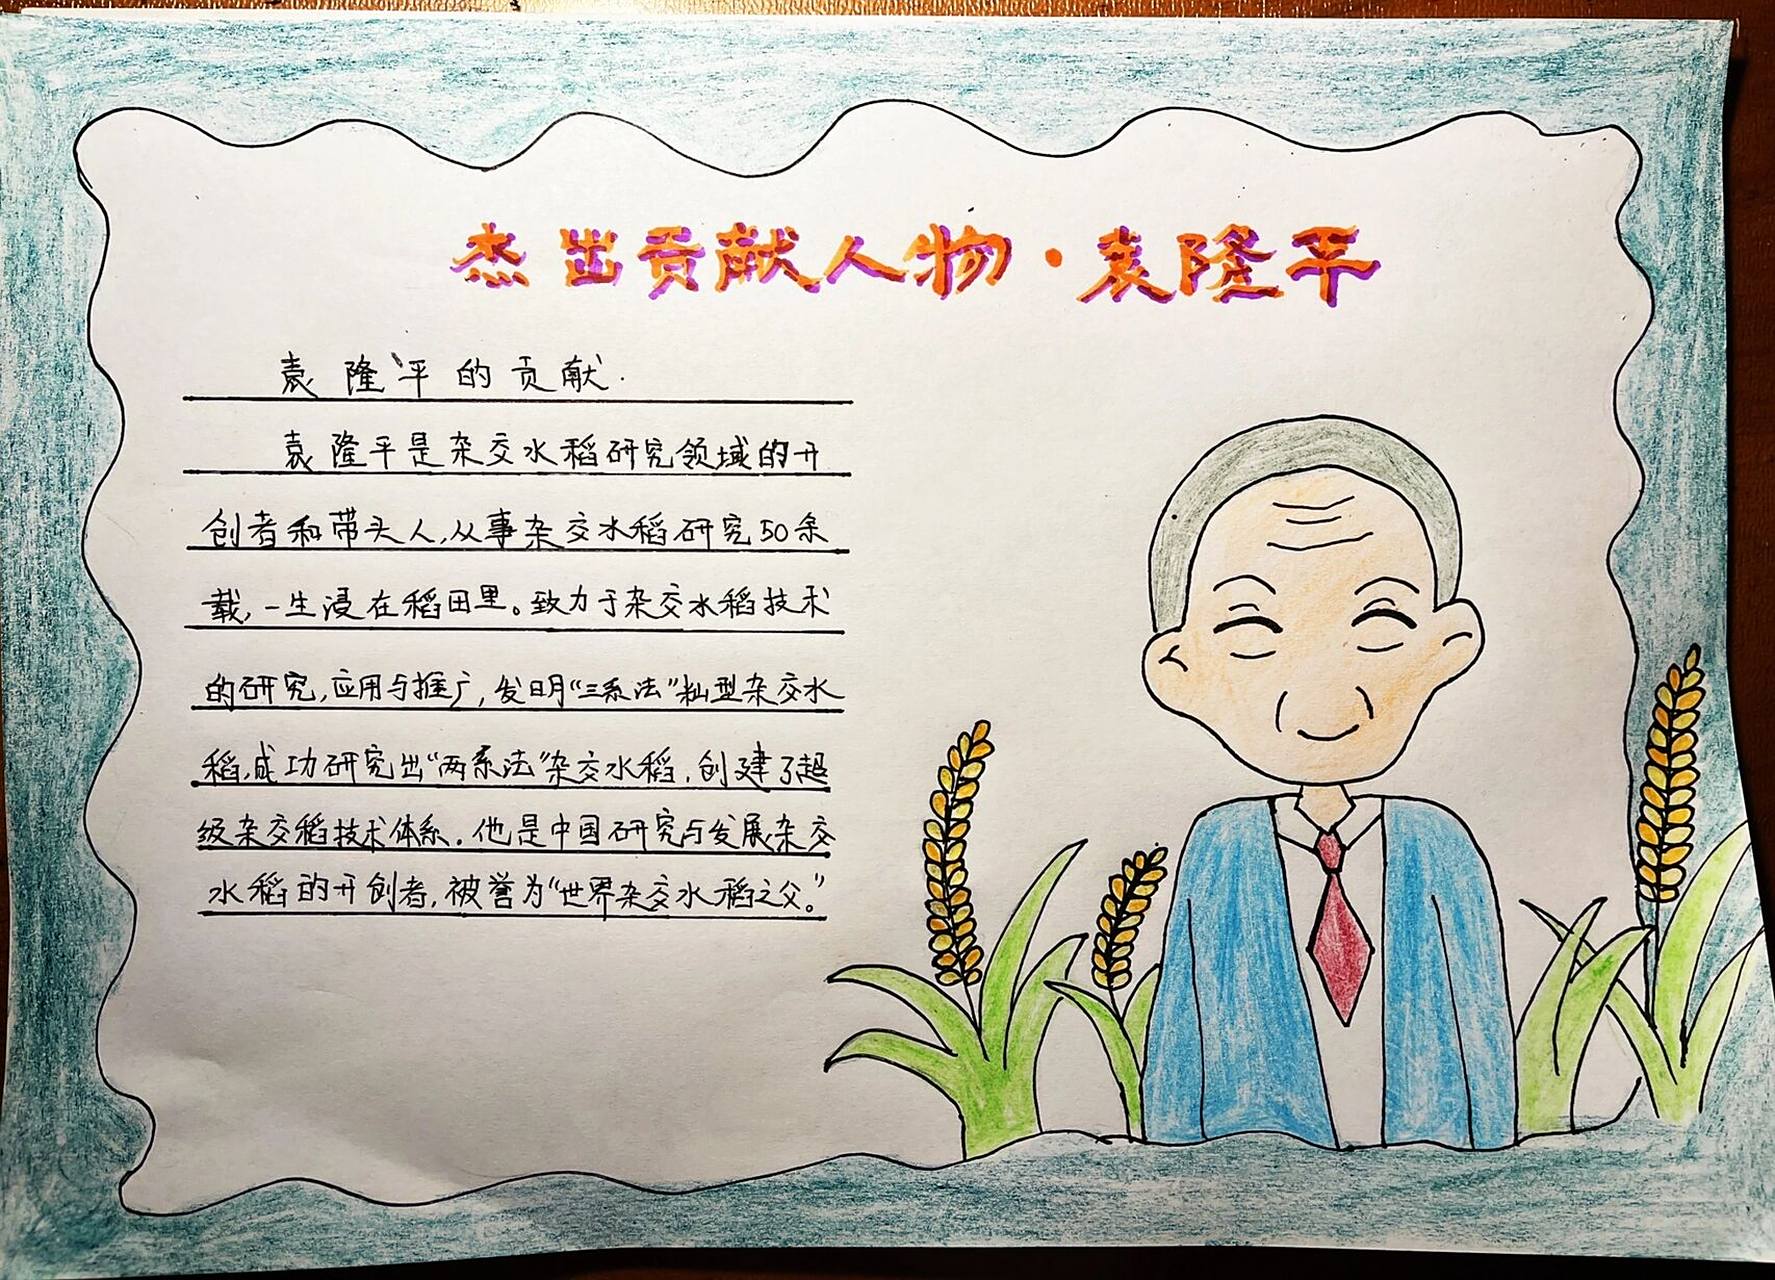 杰出贡献人物·袁隆平
袁隆平的贡献.
袁隆平是杂交水稻研究领域的开
创者和带头人,从事杂交水稻研究50余
载,一生浸在稻田里。致力于杂交水稻技术
的研究,应用与推广,发明“三系法”籼型杂交水
稻,成功研究出“两系法”杂交水稻,创建了超
级杂交稻技术体系。他是中国研究与发展杂交
水稻的开创者,被誉为“世界杂交水稻之父。”